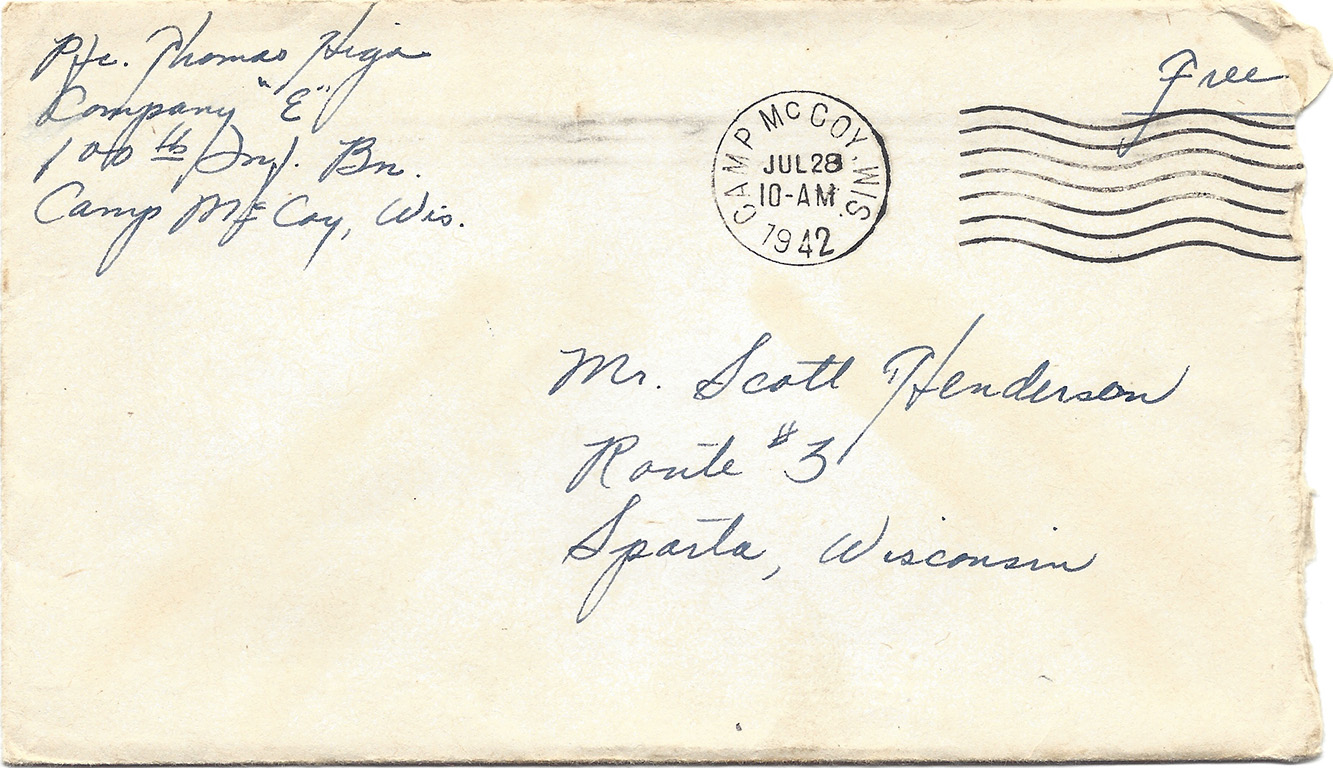 Pfc. Thomas Higa
Company "E"
100th Inf. Bn.
Camp McCoy, Wis.
Free
CAMP McCOY, WIS.
JUL 28
10-AM
1942
Mr. Scott Henderson
Route #3
Sparta, Wisconsin